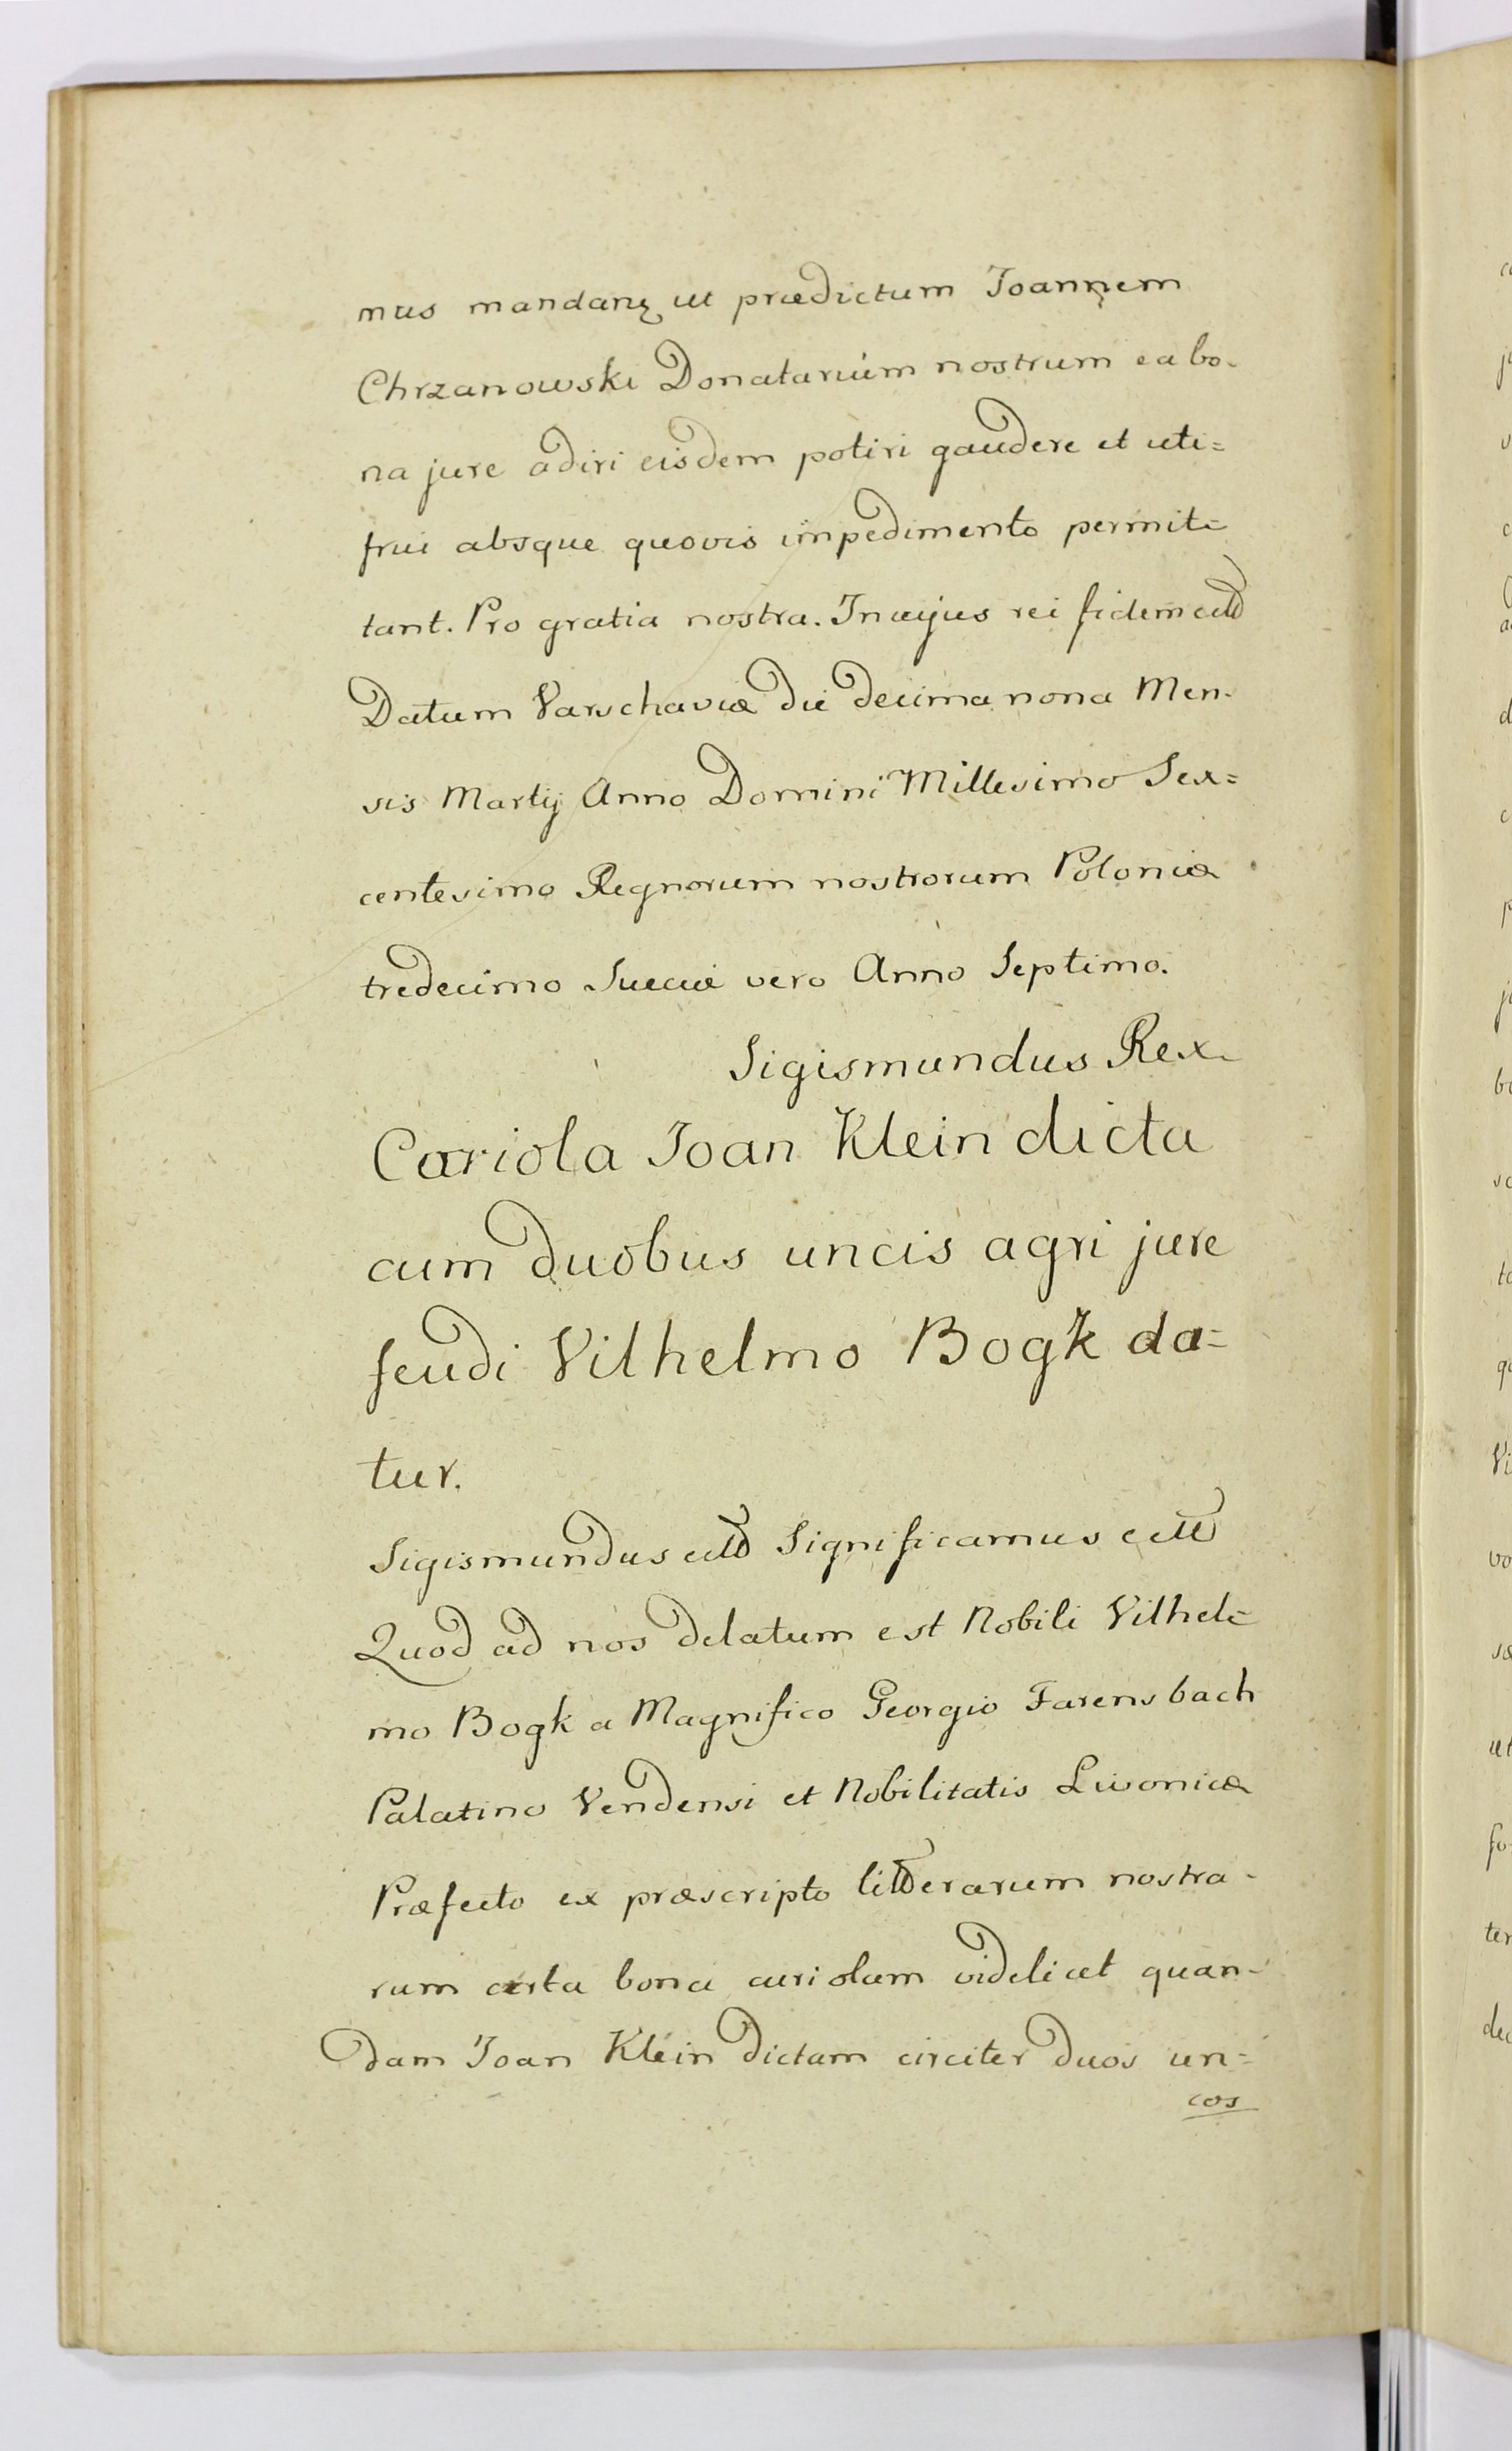 mus mandanς ut prædictum Joannem
Chrzanowski Donatarium nostrum ea bo-
na jure adiri eisdem potiri gaudere et uti=
frui absque quovis impedimento permit=
tant. Pro gratia nostra. In cujus rei fidem cett
Datum Varschaviæ die decima nona Men-
sis Martij Anno Domini Millesimo Sex=
centesimo Regnorum nostrorum Poloniæ
tredecimo Sueciæ vero Anno Septimo.
Sigismundus Rex.
Coriola Joan Klein dicta
cum duobus uncis agri jure
feudi Vilhelmo Bogk da=
tur.
Sigismundus cett Significamus cett
Quod ad nos delatum est Nobili Vilhel=
mo Bogk a Magnifico Georgio Farensbach
Palatino Vendensi et Nobilitatis Livonicæ
Præfecto ex præscripto litterarum nostra-
rum certa bona curiolam videlicet quan-
dam Joan Klein dictam circiter duos un=
cos